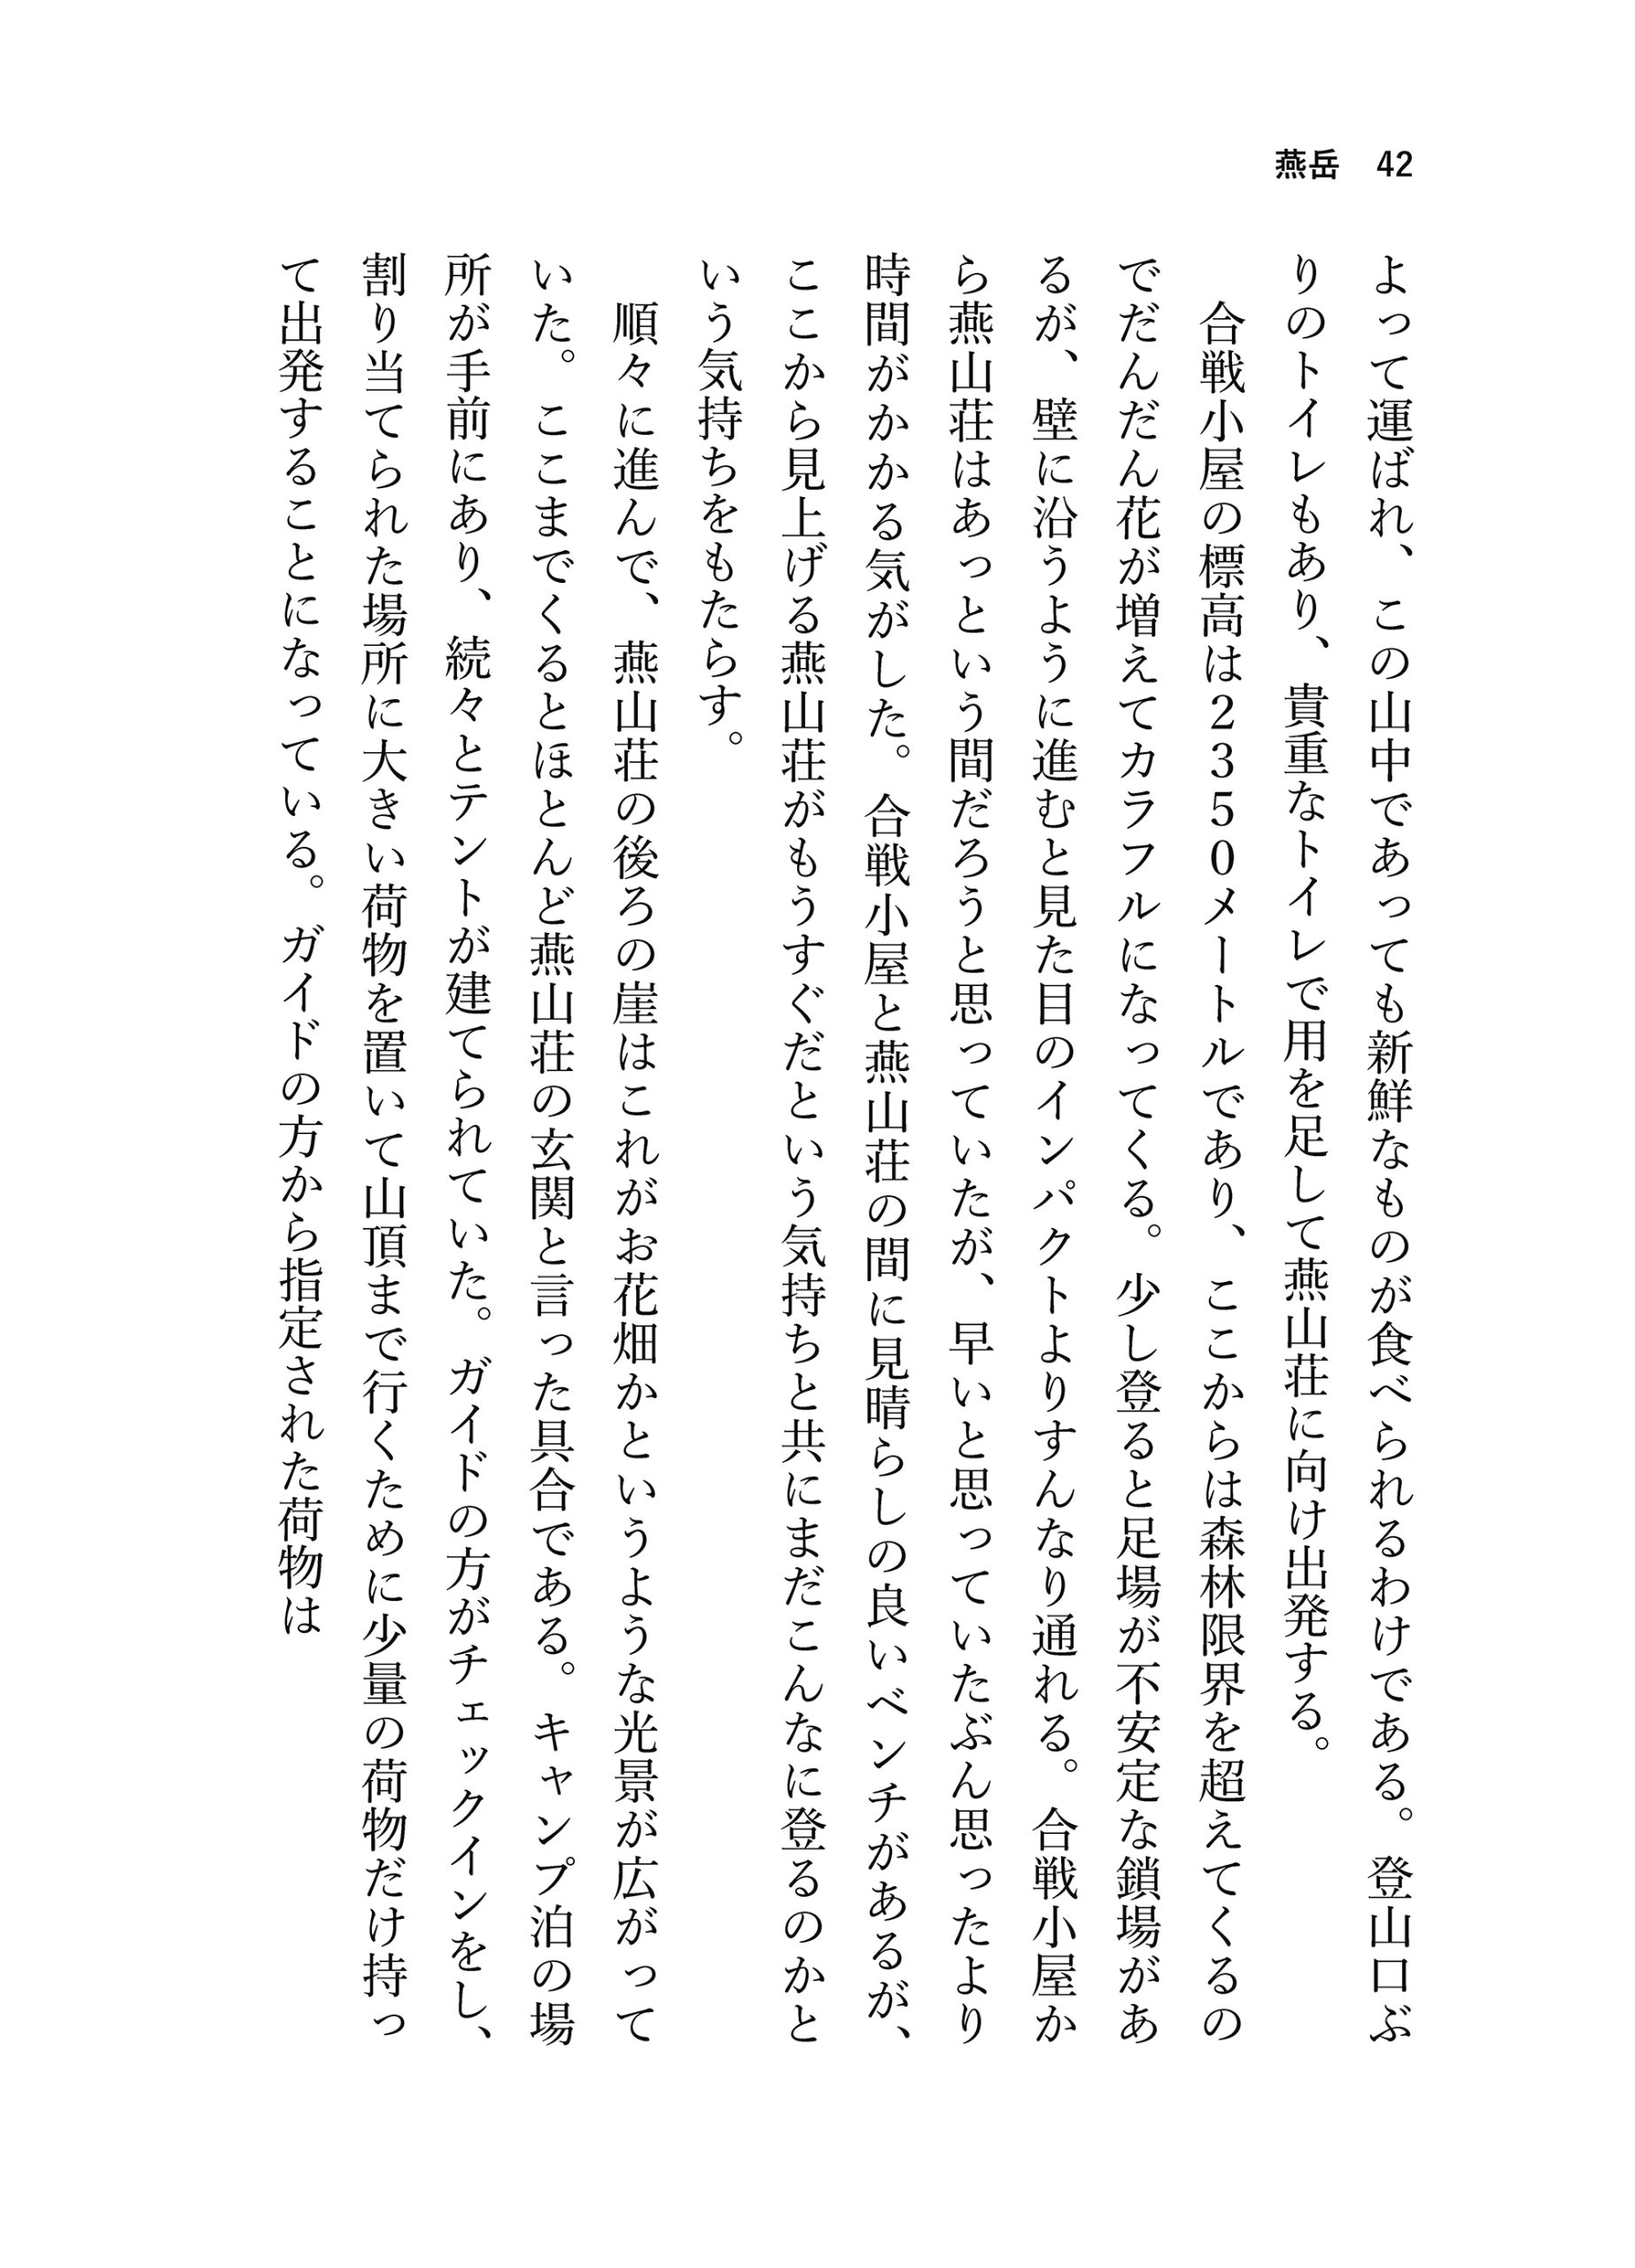 燕岳　42
よって運ばれ、この山中であっても新鮮なものが食べられるわけである。登山口ぶ
りのトイレもあり、貴重なトイレで用を足して燕山荘に向け出発する。
　合戦小屋の標高は2350メートルであり、ここからは森林限界を超えてくるの
でだんだん花が増えてカラフルになってくる。少し登ると足場が不安定な鎖場があ
るが、壁に沿うように進むと見た目のインパクトよりすんなり通れる。合戦小屋か
ら燕山荘はあっという間だろうと思っていたが、早いと思っていたぶん思ったより
時間がかかる気がした。合戦小屋と燕山荘の間に見晴らしの良いベンチがあるが、
ここから見上げる燕山荘がもうすぐだという気持ちと共にまだこんなに登るのかと
いう気持ちをもたらす。
　順々に進んで、燕山荘の後ろの崖はこれがお花畑かというような光景が広がって
いた。ここまでくるとほとんど燕山荘の玄関と言った具合である。キャンプ泊の場
所が手前にあり、続々とテントが建てられていた。ガイドの方がチェックインをし、
割り当てられた場所に大きい荷物を置いて山頂まで行くために少量の荷物だけ持っ
て出発することになっている。ガイドの方から指定された荷物は